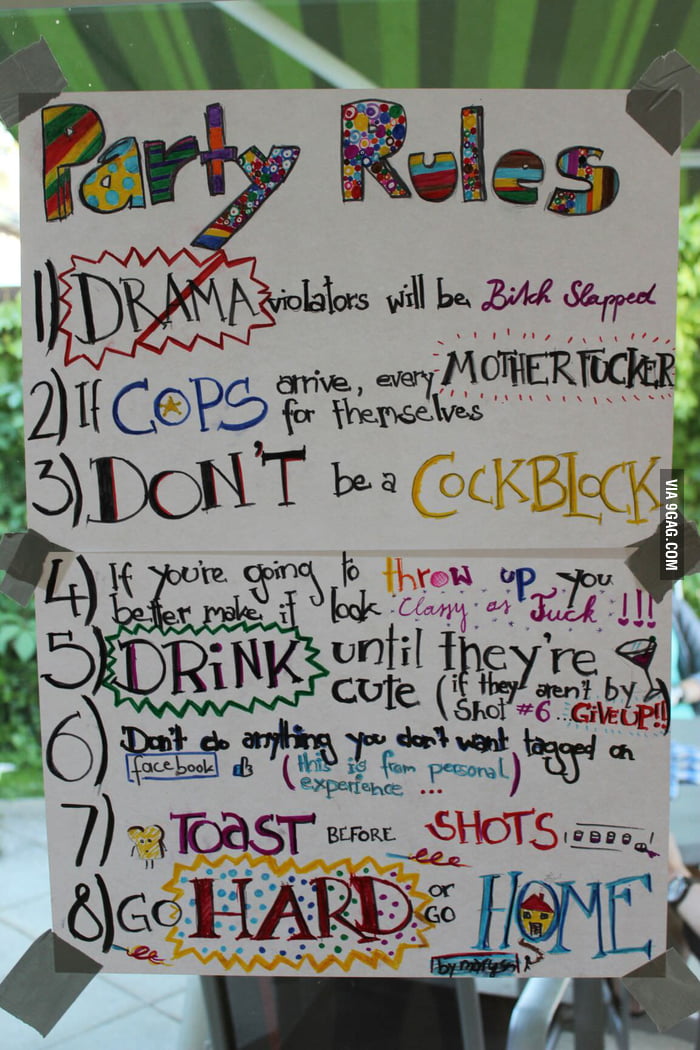 Party Rules
1) DRAMA violators will be Bitch Slapped
2) If COPS arrive, every MOTHERFUCKER
for themselves
3) DON'T be a COCKBLOCK
4) If you're going to throw up you
better make it look Classy as Fuck !!!
5) DRiNK until they're
cute (if they aren't by
shot #6 ... GiVE UP!!)
6) Don't do anything you don't want tagged on
facebook (this is from personal
experience ...)
7) TOAST BEFORE SHOTS
8) GO HARD or
GO HOME
VIA 9GAG.COM